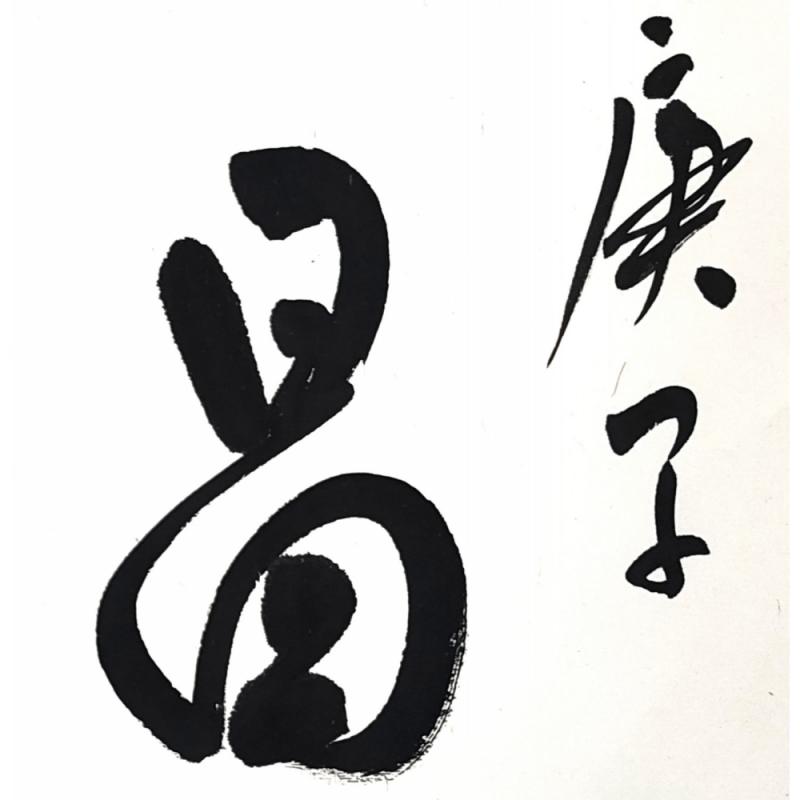 庚子
昌